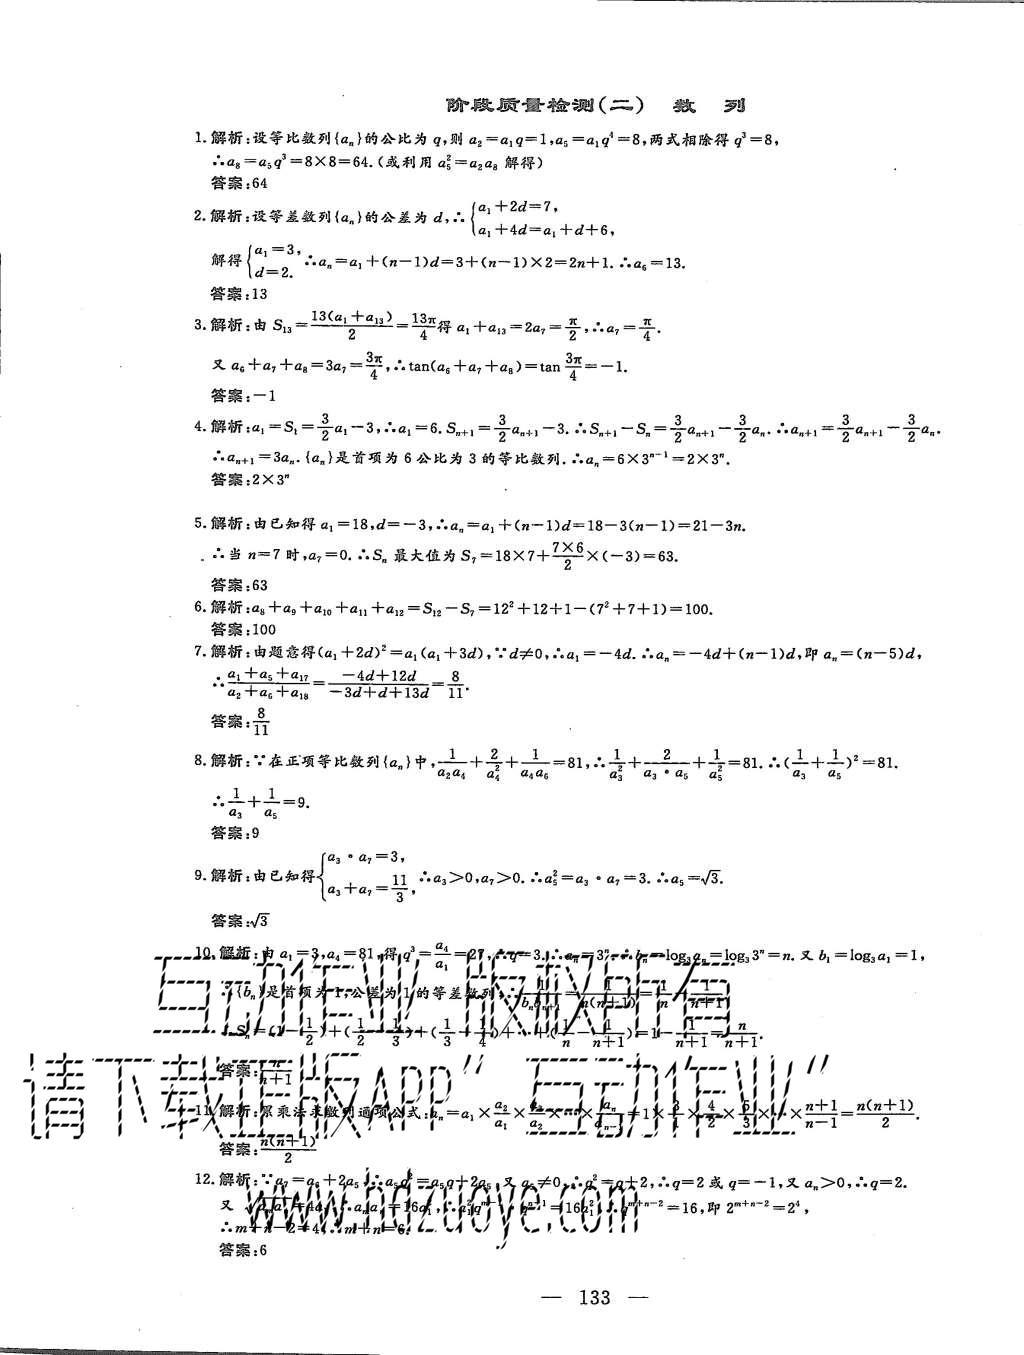 阶段质量检测(二)　数　列
1.解析:设等比数列{aₙ}的公比为 q,则 a₂=a₁q=1,a₅=a₁q⁴=8,两式相除得 q³=8,
∴a₈=a₅q³=8×8=64.(或利用 a₅²=a₂a₈ 解得)
答案:64
2.解析:设等差数列{aₙ}的公差为 d,∴{a₁+2d=7, a₁+4d=a₁+d+6,
解得{a₁=3, d=2. ∴aₙ=a₁+(n-1)d=3+(n-1)×2=2n+1.∴a₆=13.
答案:13
3.解析:由 S₁₃=13(a₁+a₁₃)/2=13π/4得 a₁+a₁₃=2a₇=π/2,∴a₇=π/4.
又 a₆+a₇+a₈=3a₇=3π/4,∴tan(a₆+a₇+a₈)=tan 3π/4=-1.
答案:-1
4.解析:a₁=S₁=3/2a₁-3,∴a₁=6.Sₙ₊₁=3/2aₙ₊₁-3.∴Sₙ₊₁-Sₙ=3/2aₙ₊₁-3/2aₙ.∴aₙ₊₁=3/2aₙ₊₁-3/2aₙ.
∴aₙ₊₁=3aₙ.{aₙ}是首项为 6 公比为 3 的等比数列.∴aₙ=6×3ⁿ⁻¹=2×3ⁿ.
答案:2×3ⁿ
5.解析:由已知得 a₁=18,d=-3,∴aₙ=a₁+(n-1)d=18-3(n-1)=21-3n.
∴当 n=7 时,a₇=0.∴Sₙ 最大值为 S₇=18×7+7×6/2×(-3)=63.
答案:63
6.解析:a₈+a₉+a₁₀+a₁₁+a₁₂=S₁₂-S₇=12²+12+1-(7²+7+1)=100.
答案:100
7.解析:由题意得(a₁+2d)²=a₁(a₁+3d),∵d≠0,∴a₁=-4d.∴aₙ=-4d+(n-1)d,即 aₙ=(n-5)d,
∴(a₁+a₅+a₁₇)/(a₂+a₆+a₁₈)=(-4d+12d)/(-3d+d+13d)=8/11.
答案:8/11
8.解析:∵在正项等比数列{aₙ}中,1/(a₂a₄)+2/a₄²+1/(a₄a₆)=81,∴1/a₃²+2/(a₃·a₅)+1/a₅²=81.∴(1/a₃+1/a₅)²=81.
∴1/a₃+1/a₅=9.
答案:9
9.解析:由已知得{a₃·a₇=3, a₃+a₇=11/3, ∴a₃>0,a₇>0.∴a₅²=a₃·a₇=3.∴a₅=√3.
答案:√3
10.解析:由 a₁=3,a₄=81,得 q³=a₄/a₁=27,∴q=3.∴aₙ=3ⁿ.∴bₙ=log₃aₙ=log₃3ⁿ=n.又 b₁=log₃a₁=1,
∴{bₙ}是首项为 1,公差为 1 的等差数列,∴1/(bₙbₙ₊₁)=1/(n(n+1))=1/n-1/(n+1)
∴Sₙ=(1-1/2)+(1/2-1/3)+(1/3-1/4)+…+(1/n-1/(n+1))=1-1/(n+1)=n/(n+1).
答案:n/(n+1)
11.解析:累乘法求数列通项公式:aₙ=a₁×a₂/a₁×a₃/a₂×…×aₙ/aₙ₋₁=1×3/1×4/2×5/3×…×(n+1)/(n-1)=n(n+1)/2.
答案:n(n+1)/2
12.解析:∵a₇=a₆+2a₅,∴a₅q²=a₅q+2a₅,又 a₅≠0,∴q²=q+2,∴q=2 或 q=-1,又 aₙ>0,∴q=2.
又 =4a₁,∴aₘaₙ=16a₁²,∴ =16a₁²,∴qᵐ⁺ⁿ⁻²=16,即 2ᵐ⁺ⁿ⁻²=2⁴,
∴m+n-2=4,∴m+n=6.
答案:6
"互动作业"版权所有
请下载正版APP"互动作业"
www.hdzuoye.com
— 133 —